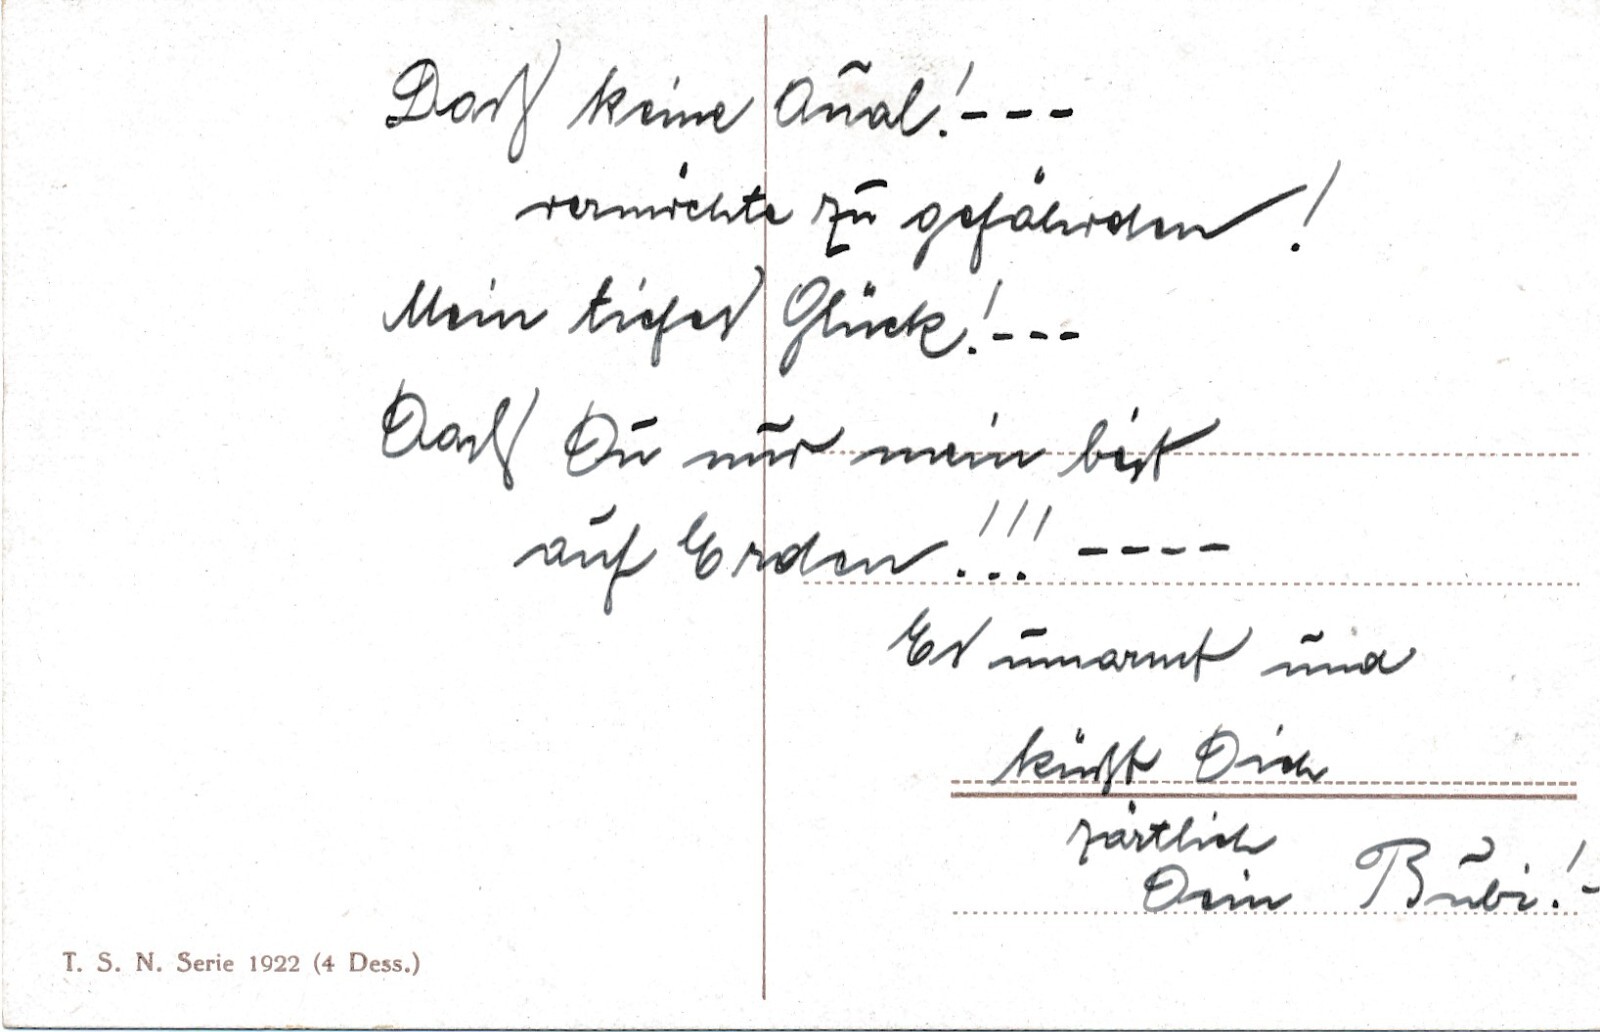 Daß keine Qual! - - -
vermöchte zu gefährden!
Mein tiefes Glück! - - -
Daß Du nur mein bist
auf Erden!!! - - - -
Es umarmt und
küßt Dich
zärtlich
Dein Bubi! -
T. S. N. Serie 1922 (4 Dess.)